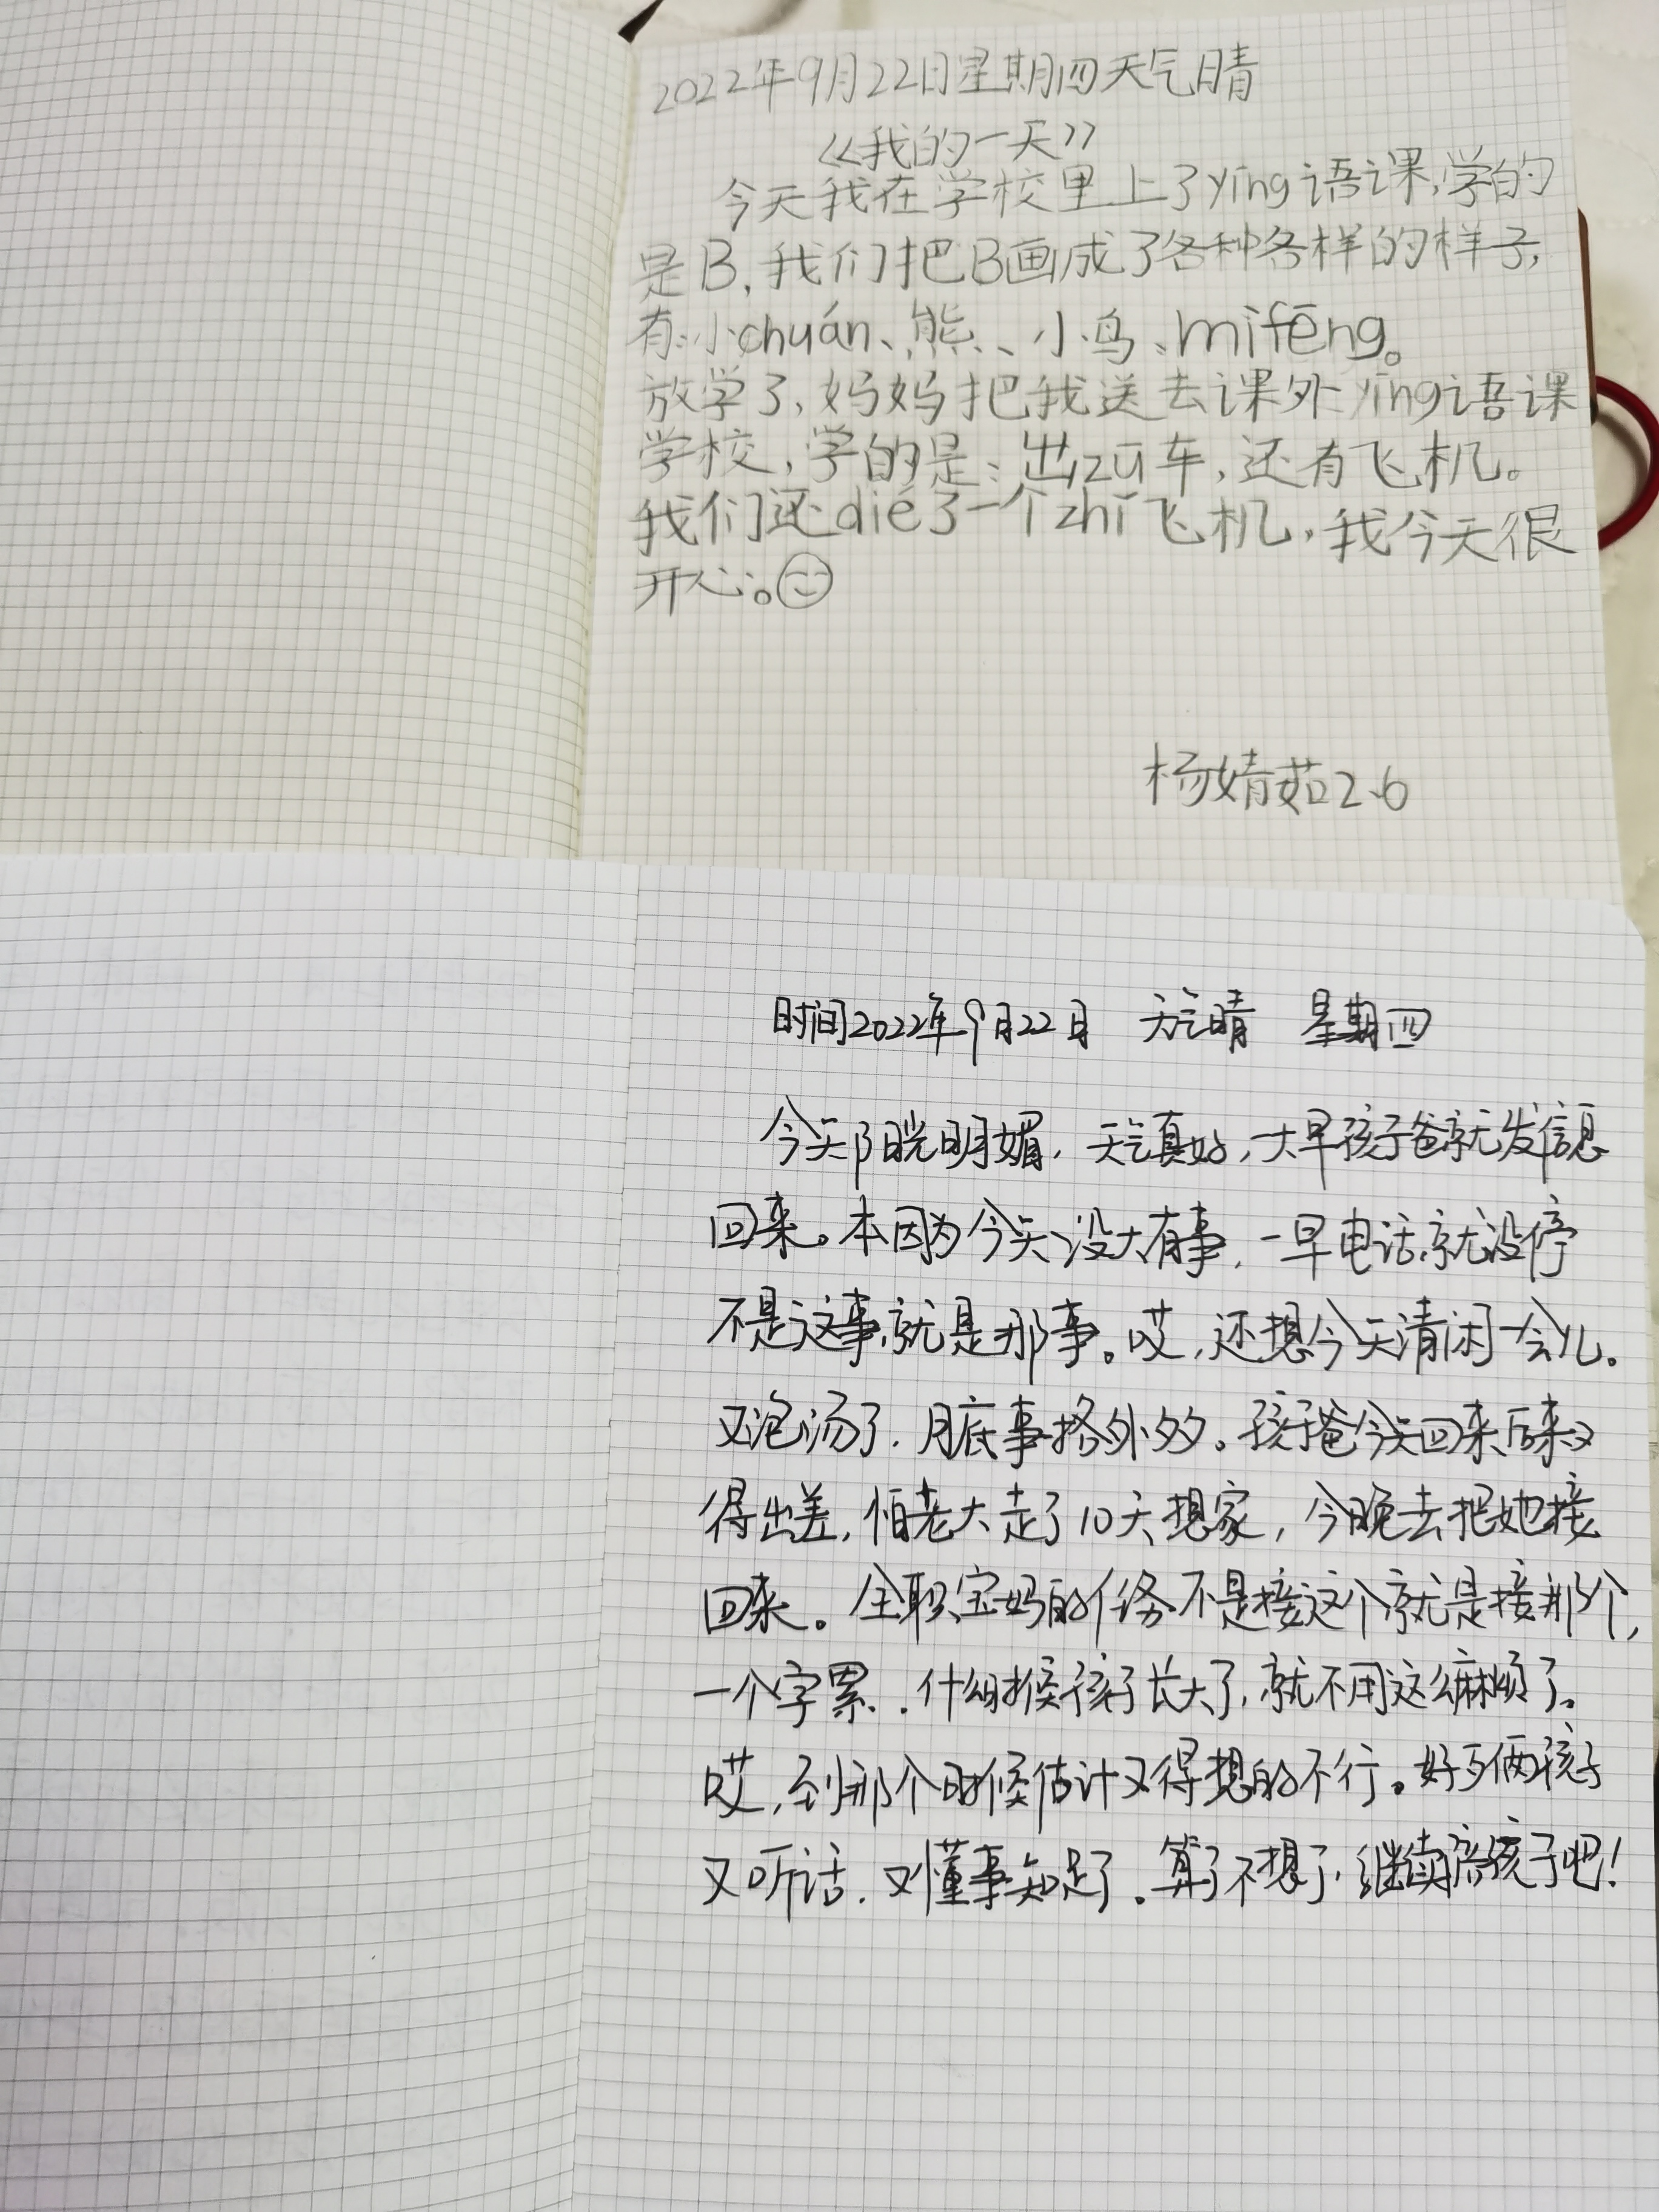 2022年9月22日星期四天气晴
《我的一天》
今天我在学校里上了yīng语课,学的
是B,我们把B画成了各种各样的样子,
有小chuán、熊、小鸟、mìfēng。
放学了,妈妈把我送去课外yīng语课
学校,学的是:出zū车,还有飞机。
我们还dié了一个zhǐ飞机,我今天很
开心。
杨婧茹2.6
时间2022年9月22日 天气晴 星期四
今天阳光明媚,天气真好,一大早孩子爸就发信息
回来。本因为今天没大有事,一早电话就没停
不是这事就是那事。哎,还想今天清闲一会儿。
又泡汤了,月底事格外多。孩子爸今天回来后来又
得出差,怕老大走了10天想家,今晚去把她接
回来。全职宝妈的任务不是接这个就是接那个,
一个字累.什么时候孩子长大了,就不用这么麻烦了。
哎,到那个时候估计又得想的不行。好歹俩孩子
又听话,又懂事知足了。算了不想了,继续陪孩子吧!